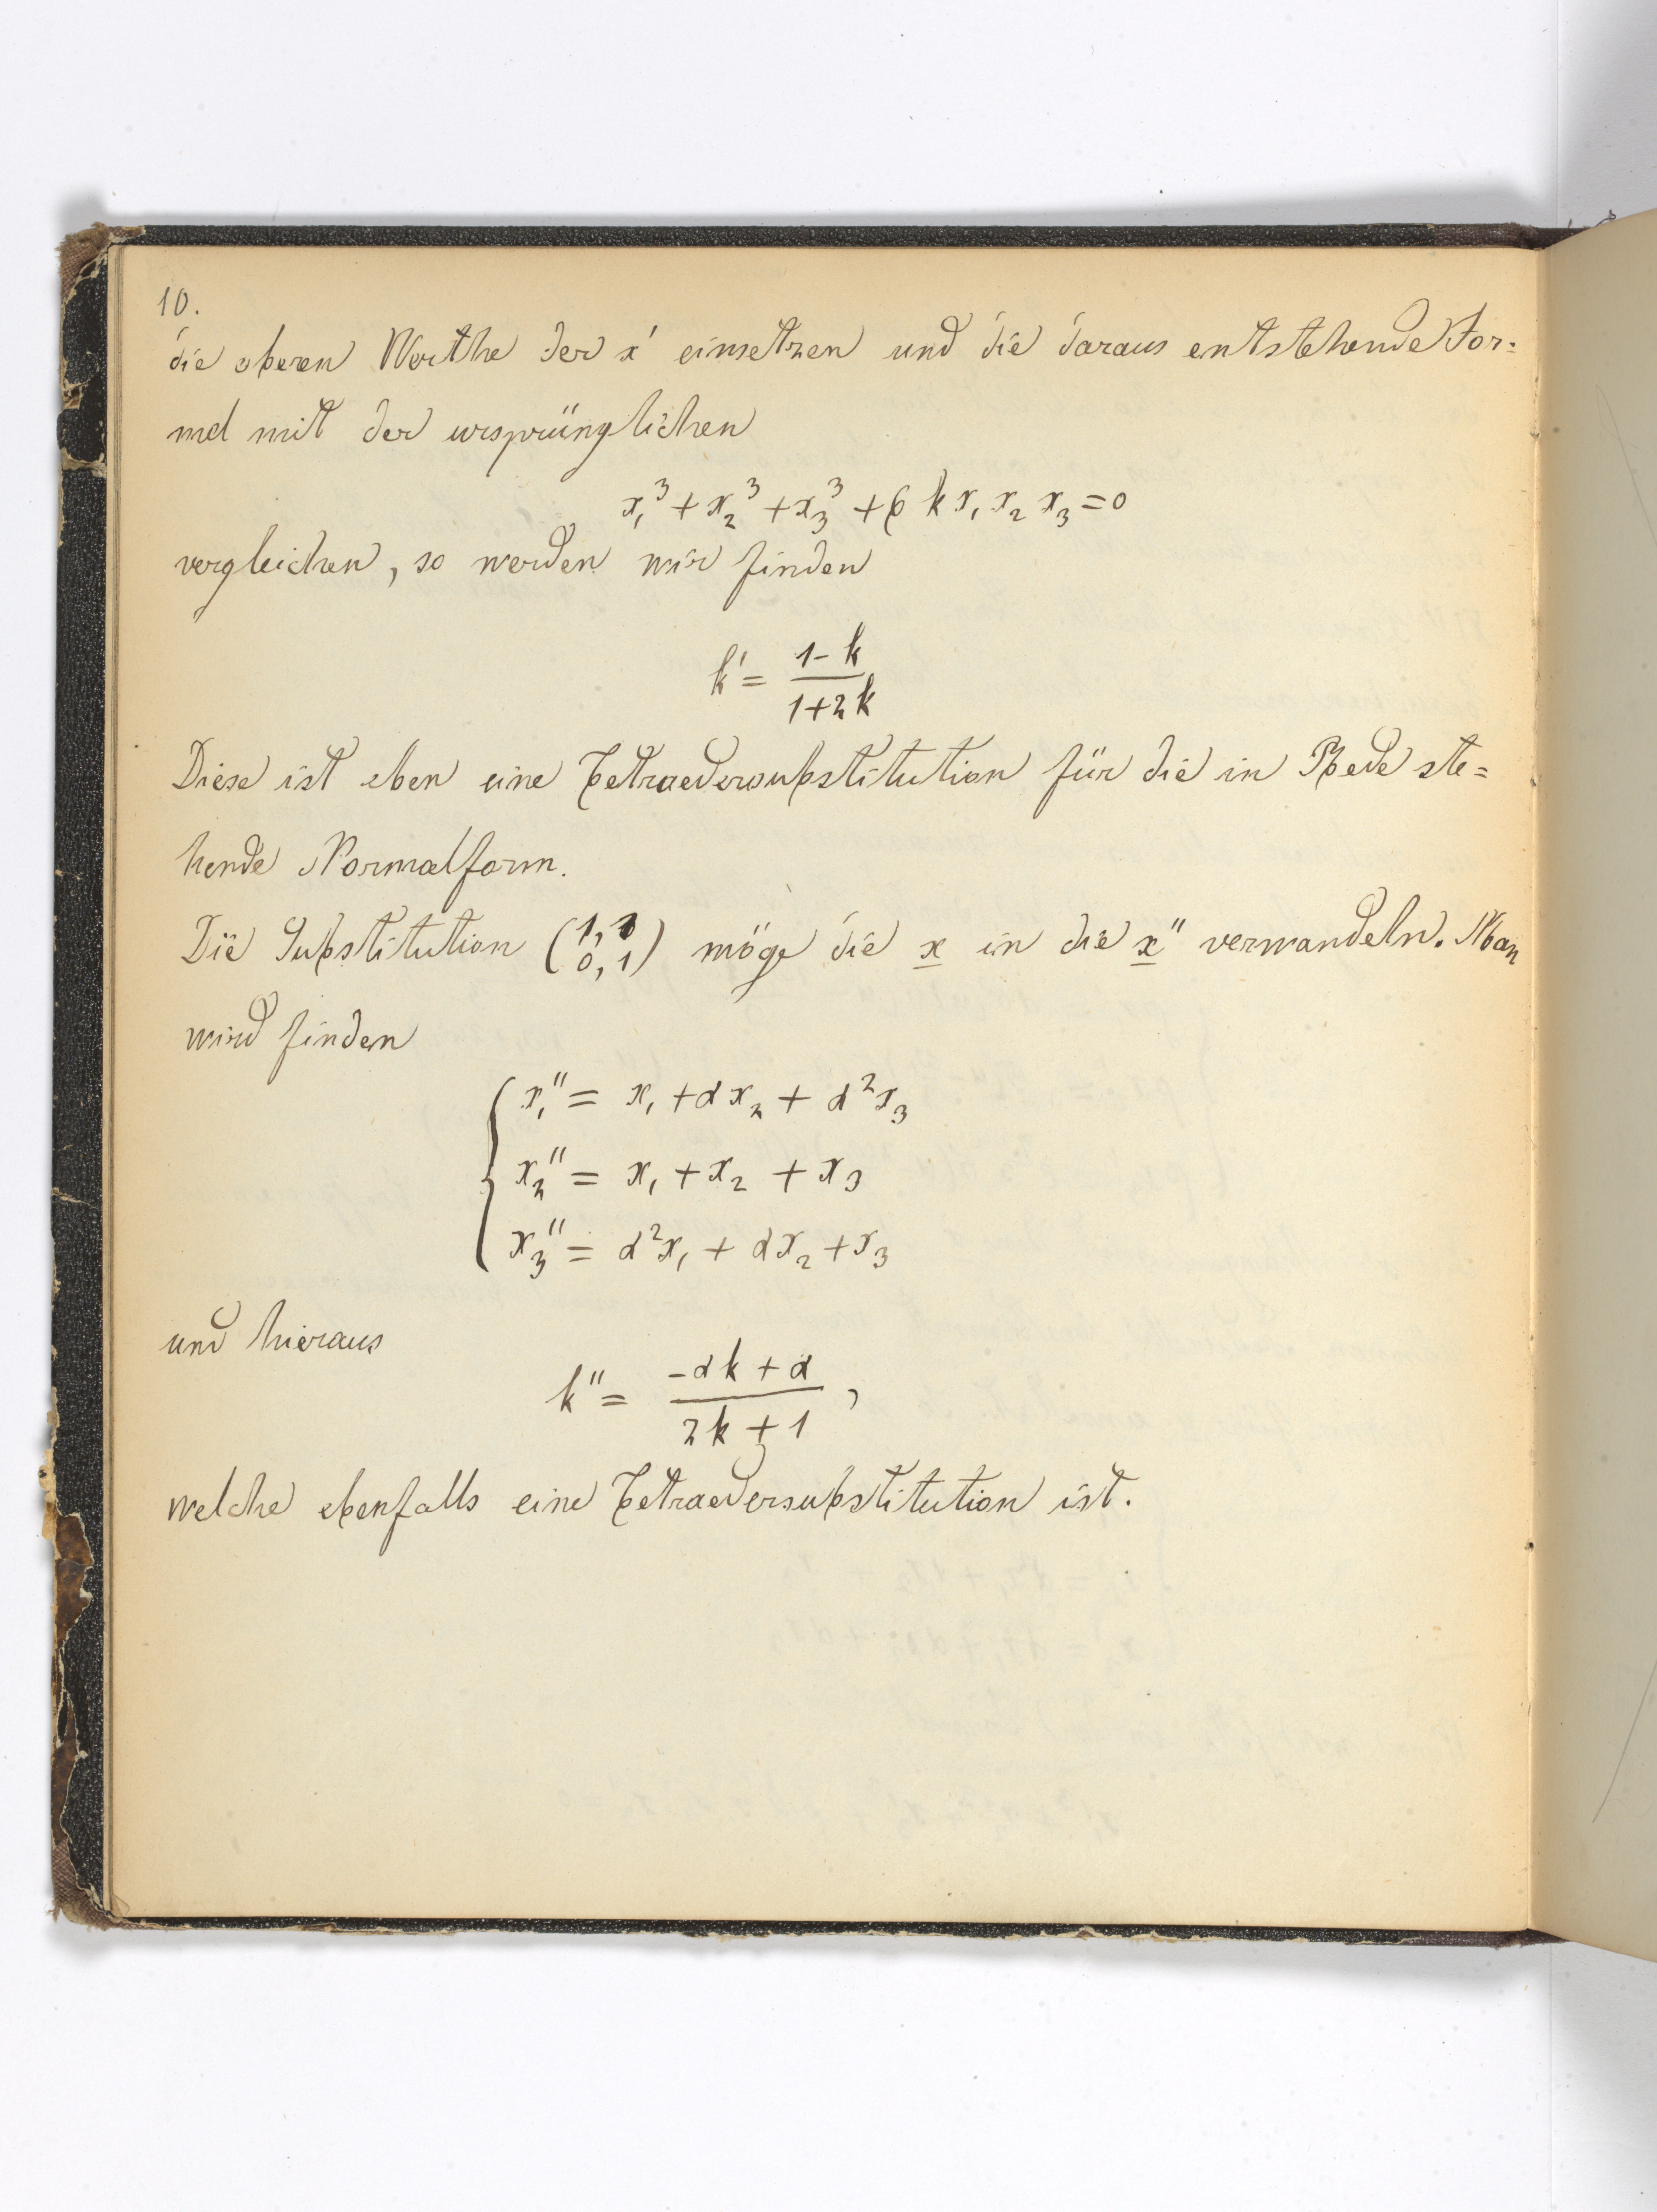 10.
die oberen Werthe der x' einsetzen und die daraus entstehende For=
mel mit der ursprünglichen
x₁³ + x₂³ + x₃³ + 6 k x₁ x₂ x₃ = 0
vergleichen, so werden wir finden
k' = (1 - k) / (1 + 2k)
Diese ist eben eine Tetraedersubstitution für die in Rede ste=
hende Normalform.
Die Substitution (1, 1 / 0, 1) möge die x in die x'' verwandeln. Man
wird finden
x₁'' = x₁ + αx₂ + α²x₃
x₂'' = x₁ + x₂ + x₃
x₃'' = α²x₁ + αx₂ + x₃
und hieraus
k'' = (-αk + α) / (2k + 1) ,
welche ebenfalls eine Tetraedersubstitution ist.